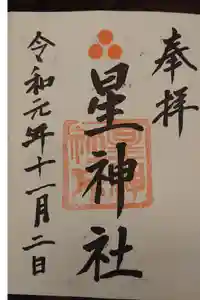 奉拝
星神社
令和元年十一月二日